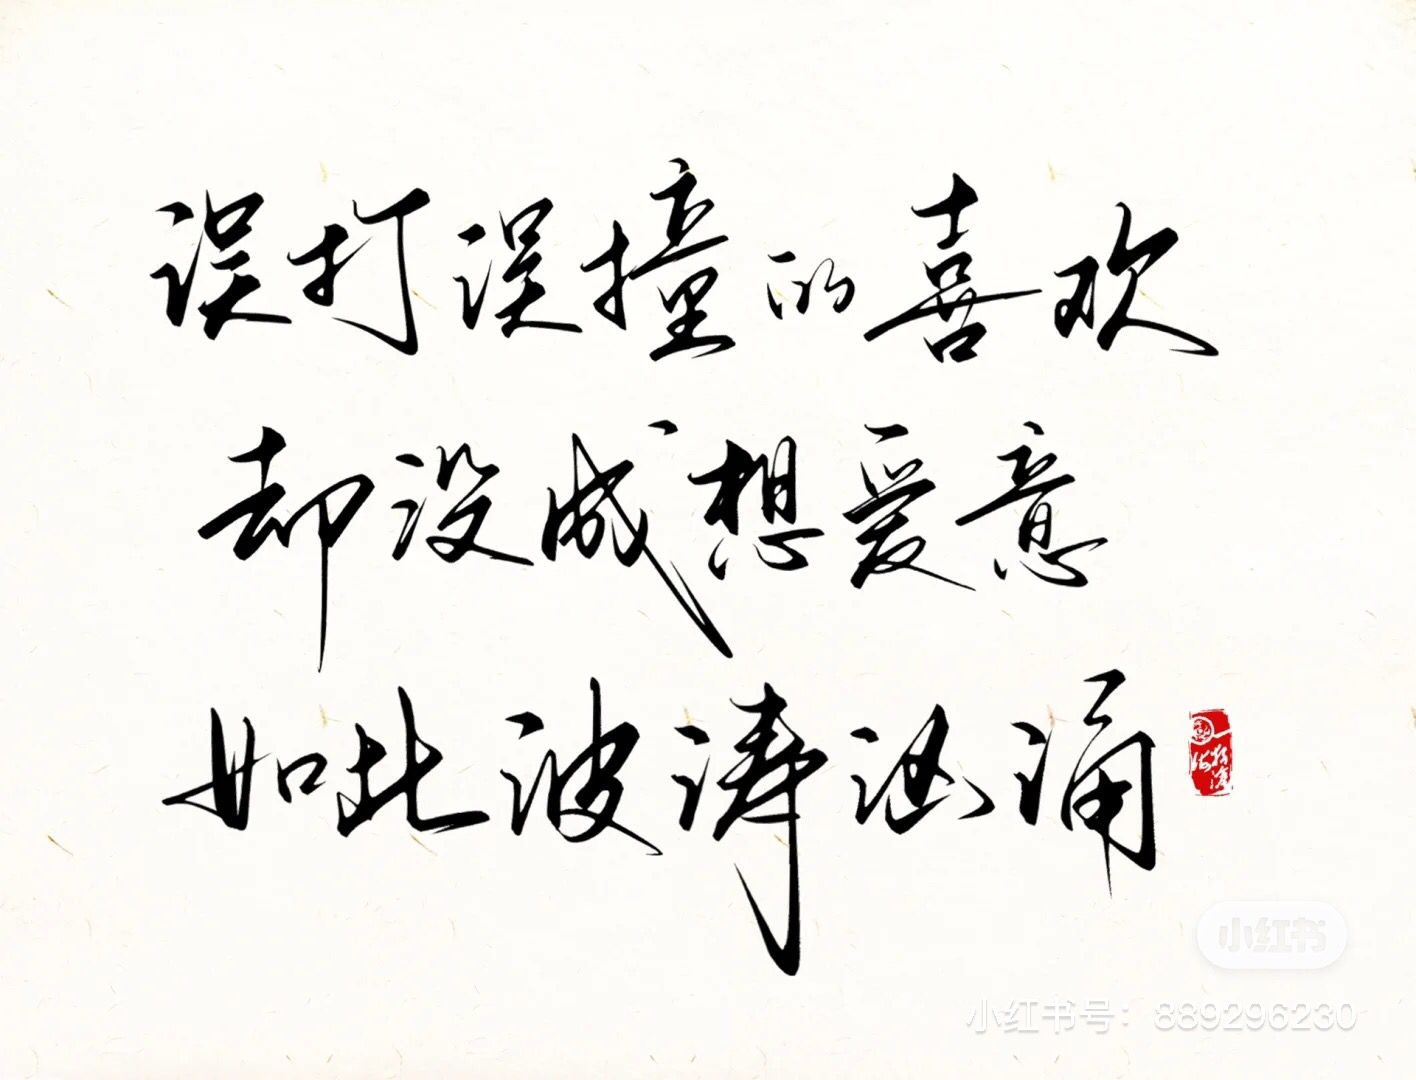 误打误撞的喜欢
却没成想爱意
如此波涛汹涌
小红书
小红书号：889296230